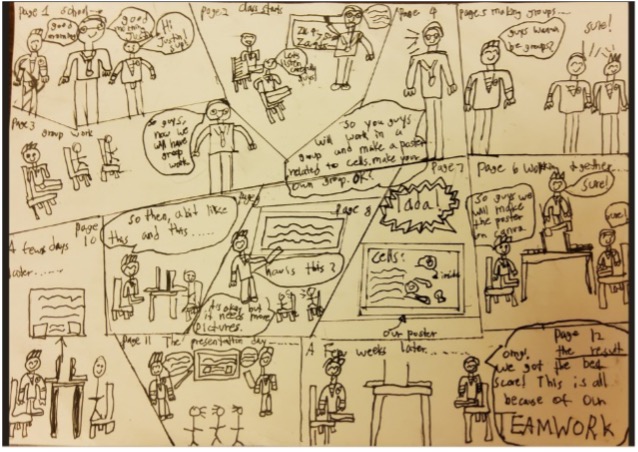 Page 1 School
good
morning
good
morning
Justin
Hi
Justin!
sup!
Page 2 Class starts
Lets
listen
carefully
guys!
Page 3
group work
So guys,
now we
will have
group
work
Page 4
So you guys
will work in a
group and make a poster
related to cells. make your
own group. OK?
Page 5 making groups...
guys wanna
be groups?
sure!
Page 6 Working together
So guys we
will make
the poster
on canva
sure!
Page 7
So then, a bit like
this and this.....
how is this?
its okay but
it needs more
pictures.
Page 8
Cells:
inside
our poster
A few days
later.......
Page 10
Page 11 The presentation day
A Few weeks later.........
Page 12
the result
omg,
we got the best
score! This is all
because of our
TEAMWORK